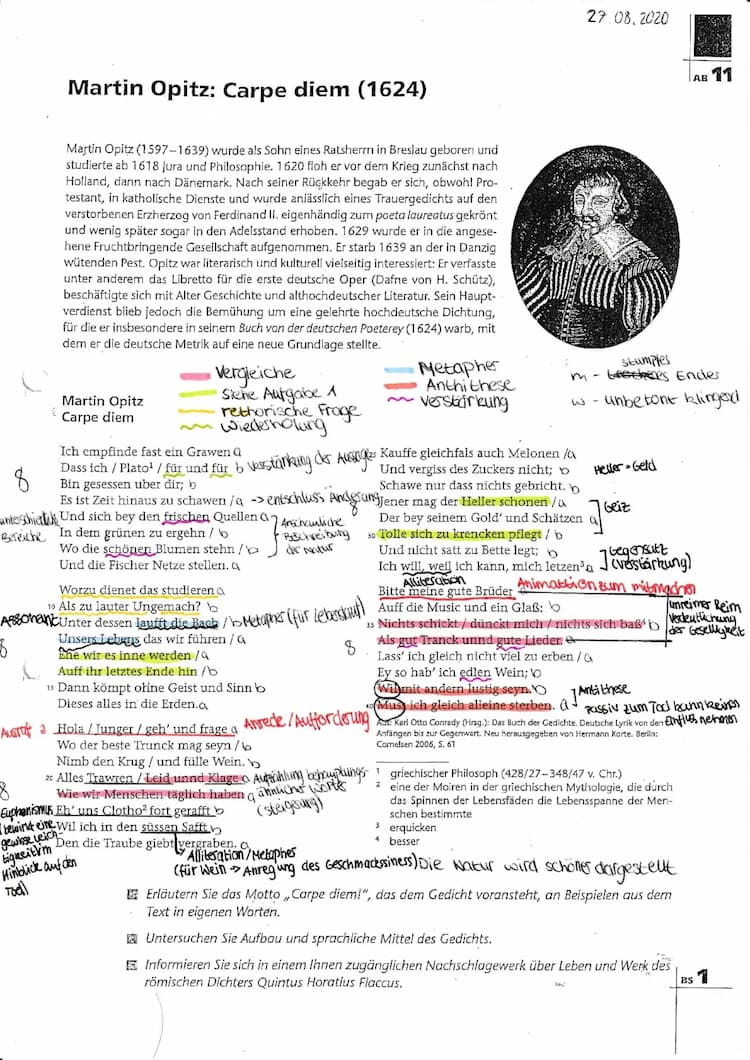 27.08.2020
AB 11
Martin Opitz: Carpe diem (1624)
Martin Opitz (1597–1639) wurde als Sohn eines Ratsherrn in Breslau geboren und
studierte ab 1618 Jura und Philosophie. 1620 floh er vor dem Krieg zunächst nach
Holland, dann nach Dänemark. Nach seiner Rückkehr begab er sich, obwohl Pro-
testant, in katholische Dienste und wurde anlässlich eines Trauergedichts auf den
verstorbenen Erzherzog von Ferdinand II. eigenhändig zum poeta laureatus gekrönt
und wenig später sogar in den Adelsstand erhoben. 1629 wurde er in die angese-
hene Fruchtbringende Gesellschaft aufgenommen. Er starb 1639 an der in Danzig
wütenden Pest. Opitz war literarisch und kulturell vielseitig interessiert: Er verfasste
unter anderem das Libretto für die erste deutsche Oper (Dafne von H. Schütz),
beschäftigte sich mit Alter Geschichte und althochdeutscher Literatur. Sein Haupt-
verdienst blieb jedoch die Bemühung um eine gelehrte hochdeutsche Dichtung,
für die er insbesondere in seinem Buch von der deutschen Poeterey (1624) warb, mit
dem er die deutsche Metrik auf eine neue Grundlage stellte.
Vergleiche
Siehe Aufgabe 1
rethorische Frage
Wiedesholung
Metapher
Anthithese
Verstärkung
stumpfes
m - Endes
w - unbetont klingend
Martin Opitz
Carpe diem
Ich empfinde fast ein Grawen a
Dass ich / Plato¹ / für und für b Verstärkung der Aussage
8
Bin gesessen uber dir; b
Es ist Zeit hinaus zu schawen / a -> entschluss Änderung
Und sich bey den frischen Quellen a
unterschiedliche Bereiche
In dem grünen zu ergehn / b
Anschauliche Beschreibung der Natur
Wo die schönen Blumen stehn / b
Und die Fischer Netze stellen. a
Worzu dienet das studieren a
10 Als zu lauter Ungemach? b
Assonanz
Unter dessen laufft die Bach / b Metapher (für Lebenslauf)
Unsers Lebens das wir führen / a
8
Ehe wir es inne werden / a
Auff ihr letztes Ende hin / b
15 Dann kömpt ohne Geist und Sinn b
Dieses alles in die Erden. a
Ausruf a Hola / Junger / geh' und frage a Anrede / Aufforderung
Wo der beste Trunck mag seyn / b
Nimb den Krug / und fülle Wein. b
20 Alles Trawren / Leid unnd Klage a Aufzählung
8
Wie wir Menschen täglich haben a ähnlicher Worte
(steigerung)
Eh' uns Clotho² fort gerafft b
Euphemismus
(bewirkt eine gewisse Leichtigkeit im Hinblick auf den Tod)
Wil ich in den süssen Safft b
Den die Traube giebt vergraben. a
Alliteration / Metapher
(für Wein -> Anregung des Geschmackssiness) Die Natur wird schönes dargestellt
Kauffe gleichfals auch Melonen / a
Und vergiss des Zuckers nicht; b
Heller = Geld
Schawe nur dass nichts gebricht. b
8
Jener mag der Heller schonen / a
Geiz
Der bey seinem Gold' und Schätzen a
30 Tolle sich zu krencken pflegt / b
Und nicht satt zu Bette legt; b
Gegensatz
(verstärkung)
Ich will, weil ich kann, mich letzen³ a
Alliteration
Bitte meine gute Brüder Animation zum mitmachen
Auff die Music und ein Glaß: b
unreiner Reim
35 Nichts schickt / dünckt mich / nichts sich baß⁴ b
Verdeutlichung der Geselligkeit
Als gut Tranck unnd gute Lieder.
8
Lass' ich gleich nicht viel zu erben / a
Ey so hab' ich edlen Wein; b
Wil mit andern lustig seyn. b
Antithese
40 Muss ich gleich alleine sterben. a
Passiv zum Tod kann keinen Einfluss nehmen
Aus: Karl Otto Conrady (Hrsg.): Das Buch der Gedichte. Deutsche Lyrik von den
Anfängen bis zur Gegenwart. Neu herausgegeben von Hermann Korte. Berlin:
Cornelsen 2006, S. 61
1 griechischer Philosoph (428/27–348/47 v. Chr.)
2 eine der Moiren in der griechischen Mythologie, die durch
das Spinnen der Lebensfäden die Lebensspanne der Men-
schen bestimmte
3 erquicken
4 besser
Erläutern Sie das Motto „Carpe diem!“, das dem Gedicht voransteht, an Beispielen aus dem
Text in eigenen Worten.
Untersuchen Sie Aufbau und sprachliche Mittel des Gedichts.
Informieren Sie sich in einem Ihnen zugänglichen Nachschlagewerk über Leben und Werk des
römischen Dichters Quintus Horatius Flaccus.
BS 1